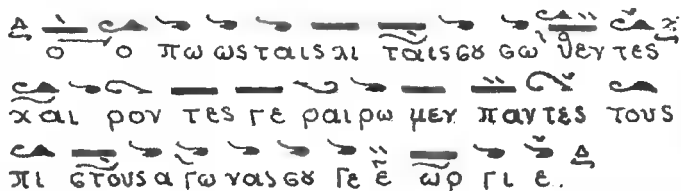 ο ο πω ως ταις λι ταις σου σω θεν τες
χαι ρον τες γε ραι ρω μεν παν τες τους
πι στους α γω νας σου Γε ε ωρ γι ε.